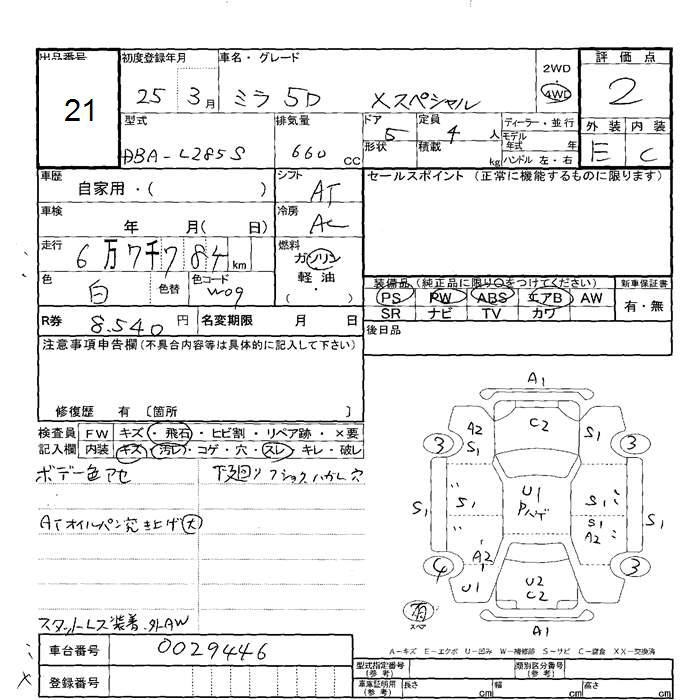 出品番号 21
初度登録年月 25 3月
車名・グレード ミラ 5D Xスペシャル
2WD
4WD
評価点 2
外装 内装
E C
型式 DBA-L285S
排気量 660 CC
ドア 5
定員 4人
形状 積載 kg
ディーラー・並行
モデル年式 年
ハンドル 左・右
車歴 自家用・( )
シフト AT
車検 年 月( 日)
冷房 AC
走行 6万7千784km
燃料 ガソリン
軽油
・( )
色 白 色替 色コード W09
セールスポイント (正常に機能するものに限ります)
装備品(純正品に限り○をつけてください)
PS PW ABS エアB AW
SR ナビ TV カワ
新車保証書
有・無
R券 8,540 円 名変期限 月 日
後日品
注意事項申告欄(不具合内容等は具体的に記入して下さい)
修復歴 有 〔箇所 〕
検査員 FW キズ・飛石・ヒビ割・リペア跡・×要
記入欄 内装 キズ・汚レ・コゲ・穴・スレ・キレ・破レ
ボデー色アセ
下廻り
ATオイルパン 突上げ 大
スタットレス装着 外AW
車台番号 0029446
登録番号
A1
C2
A2
S1
S1
3
3
S1
S1
U1
Pハゲ
S1
S1
A2
S1
A2
4
U1
U2
C2
3
有
スペア
A1
A-キズ E-エクボ U-凹み W-補修跡 S-サビ C-腐食 XX-交換済
型式指定番号(参考) 類別区分番号(参考)
車庫証明用(参考) 長さ cm 幅 cm 高さ cm